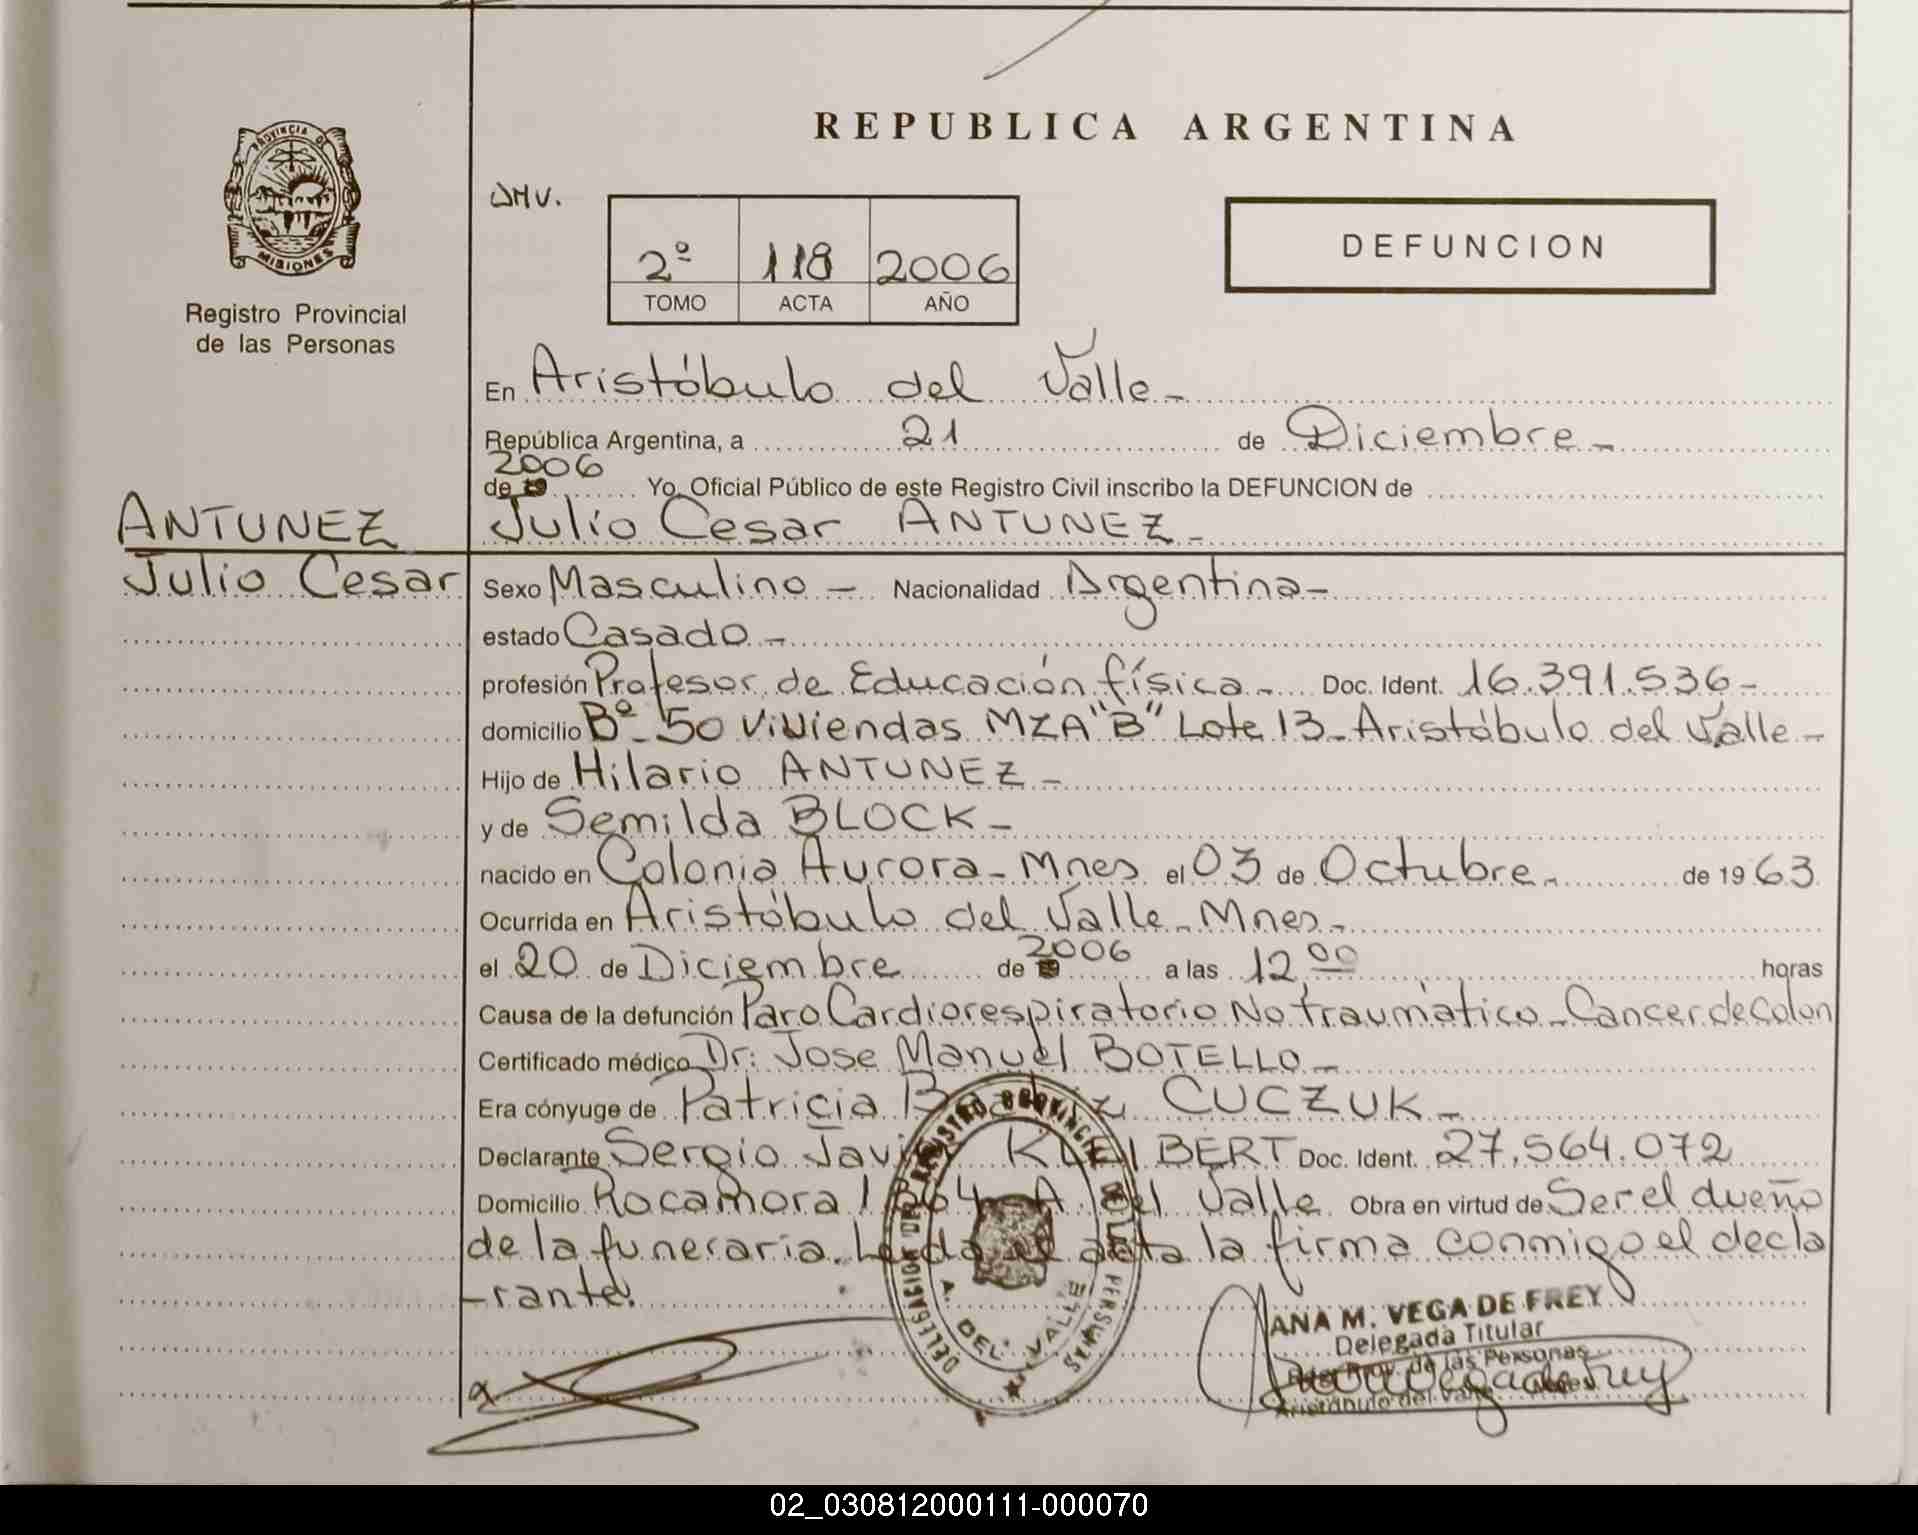 REPUBLICA ARGENTINA
PROVINCIA DE
MISIONES
Registro Provincial
de las Personas
DMV.
2º 118 2006
TOMO ACTA AÑO
DEFUNCION
En Aristóbulo del Valle-
República Argentina, a 21 de Diciembre-
2006
de 19 Yo, Oficial Público de este Registro Civil inscribo la DEFUNCION de
ANTUNEZ Julio Cesar ANTUNEZ-
Julio Cesar Sexo Masculino - Nacionalidad Argentina-
estado Casado-
profesión Profesor de Educación física- Doc. Ident. 16.391.536-
domicilio Bº- 50 Viviendas MZA "B" Lote 13- Aristóbulo del Valle-
Hijo de Hilario ANTUNEZ-
y de Semilda BLOCK-
nacido en Colonia Aurora- Mnes el 03 de Octubre- de 1963
Ocurrida en Aristóbulo del Valle- Mnes-
el 20 de Diciembre de 2006 a las 12,00 horas
Causa de la defunción Paro Cardiorespiratorio No traumático- Cancer de Colon
Certificado médico Dr: Jose Manuel BOTELLO-
Era cónyuge de Patricia CUCZUK-
Declarante Sergio Doc. Ident. 27.564.072
Domicilio Rocamora A. del Valle Obra en virtud de Ser el dueño
de la funeraria. Leida el acta la firma conmigo el decla
-rante.
DELEGACION DEL REGISTRO PROVINCIAL DE LAS PERSONAS
A. DEL VALLE
ANA M. VEGA DE FREY
Delegada Titular
de las Personas
Aristóbulo del Valle
02_030812000111-000070